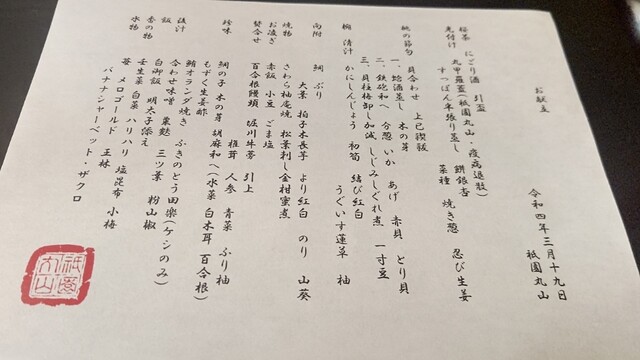 お献立
令和四年三月十九日
祇園丸山
桜茶 にごり酒 引盃
先付け 丸甲羅蓋(祇園丸山・疫病退散)
すっぽん羊張り蒸し 餅銀杏 焼き葱 忍び生姜
菜種
桃の節句 貝合わせ 上巳禊祓
一、蛤酒蒸し 木の芽
二、鉄砲和へ 分葱 いか あげ 赤貝 とり貝
三、貝柱梅卸し加減 しじみしぐれ煮 一寸豆
椀 清汁 かにしんじょう 初筍 結び紅白
うぐいす蓮草 柚
向附 鯛 ぶり
大葉 拍子木長芋 より紅白 のり 山葵
焼物 さわら柚庵焼 松葉刺し金柑蜜煮
お凌ぎ 赤飯 小豆 ごま塩
焚合せ 百合根饅頭 堀川牛蒡 引上
椎茸 人参 青菜 ふり柚
珍味 鯛の子 木の芽 胡麻和へ(水菜 白木耳 百合根)
もずく生姜酢
鮪オランダ焼き ふきのとう田楽(ケシのみ)
後汁 合わせ味噌 粟麩 三ツ葉 粉山椒
飯 白御飯 明太子添え
香の物 壬生菜 白菜 ハリハリ 塩昆布 小梅
水物 苺 メロゴールド 王林
バナナシャーベット・ザクロ
祇園丸山